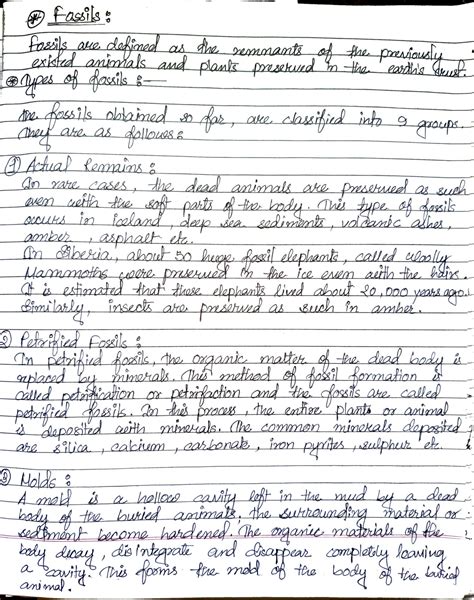 * Fossils :
Fossils are defined as the remnants of the previously
existed animals and plants preserved in the earth's crust.
* Types of fossils :—
The fossils obtained so far, are classified into 9 groups.
They are as follows :
① Actual Remains :
In rare cases, the dead animals are preserved as such
even with the soft parts of the body. This type of fossils
occurs in iceland, deep sea sediments, volcanic ashes,
amber, asphalt etc.
In Siberia, about 50 huge fossil elephants, called woolly
Mammoths were preserved in the ice even with the hairs.
It is estimated that these elephants lived about 20,000 years ago.
Similarly, insects are preserved as such in amber.
② Petrified Fossils :
In petrified fossils, the organic matter of the dead body is
replaced by minerals. This method of fossil formation is
called petrification or petrifaction and the fossils are called
petrified fossils. In this process, the entire plants or animal
is deposited with minerals. The common minerals deposited
are silica, calcium, carbonate, iron pyrites, sulphur etc.
③ Molds :
A mold is a hollow cavity left in the mud by a dead
body of the buried animals. The surrounding material or
sediment become hardened. The organic materials of the
body decay, disintegrate and disappear completely leaving
a cavity. This forms the mold of the body of the buried
animal.